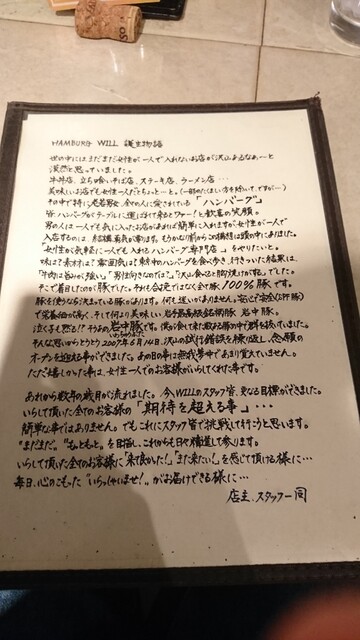 HAMBURG WILL 誕生物語
世の中にはまだまだ女性が一人で入れないお店が沢山あるなぁ～と
漠然と思っていました。
牛丼店、立ち喰いそば店、ステーキ店、ラーメン店・・・
美味しいお店でも女性一人だとちょっと…と。(一部のたくましい方を除いて、ですが…)
その中で特に老若男女、全ての人に愛されている「ハンバーグ」
皆ハンバーグがテーブルに運ばれて来るとワァー!と歓喜の笑顔。
男の人は一人でも気に入ったお店があれば簡単に入れますが、女性が一人で
入店するのは、結構勇気が要ります。もうかなり前からこの構想は頭の中にありました。
女性が気軽に一人でも入れる ハンバーグ専門店 をやりたいと。
味は?素材は?雰囲気は?東京中のハンバーグを食べ歩き、行きついた結果は、
「牛肉は旨みが強い。」「男性向きなのでは?」「沢山食べると胸焼けがする。」でした。
そこで着目したのが「豚」でした。それも合挽きではなく全て豚。100%豚です。
豚を使うなら決まっている豚があります。何も迷いがありません。安心で安全(SPF豚)
で栄養価が高く、そして何より美味しい 岩手県高級銘柄豚 岩中豚。
泣く子も黙る!? そうあの岩中豚です。僕が食べて来た数ある豚の中で群を抜いていました。
そんな思いからとうとう2007年6月14日、沢山の試行錯誤を繰り返し、念願の
オープンを迎える事ができました。あの日の事は無我夢中であまり覚えていません。
ただ一番嬉しかった事は、女性一人でのお客様がいらしてくれた事です。
あれから数年の歳月が流れました。今、WILLのスタッフ皆、更なる目標ができました。
いらして頂いた全てのお客様の「期待を超える事」・・・
簡単な事ではありません。でもこれにスタッフ皆で挑戦して行こうと思います。
“まだまだ。”“もっともっと。”を目指し、これからも日々精進して参ります。
いらして頂いた全てのお客様に「来て良かった!」「また来たい!」を感じて頂ける様に…
毎日、心のこもった“いらっしゃいませ!”がお届けできる様に…
店主、スタッフ一同